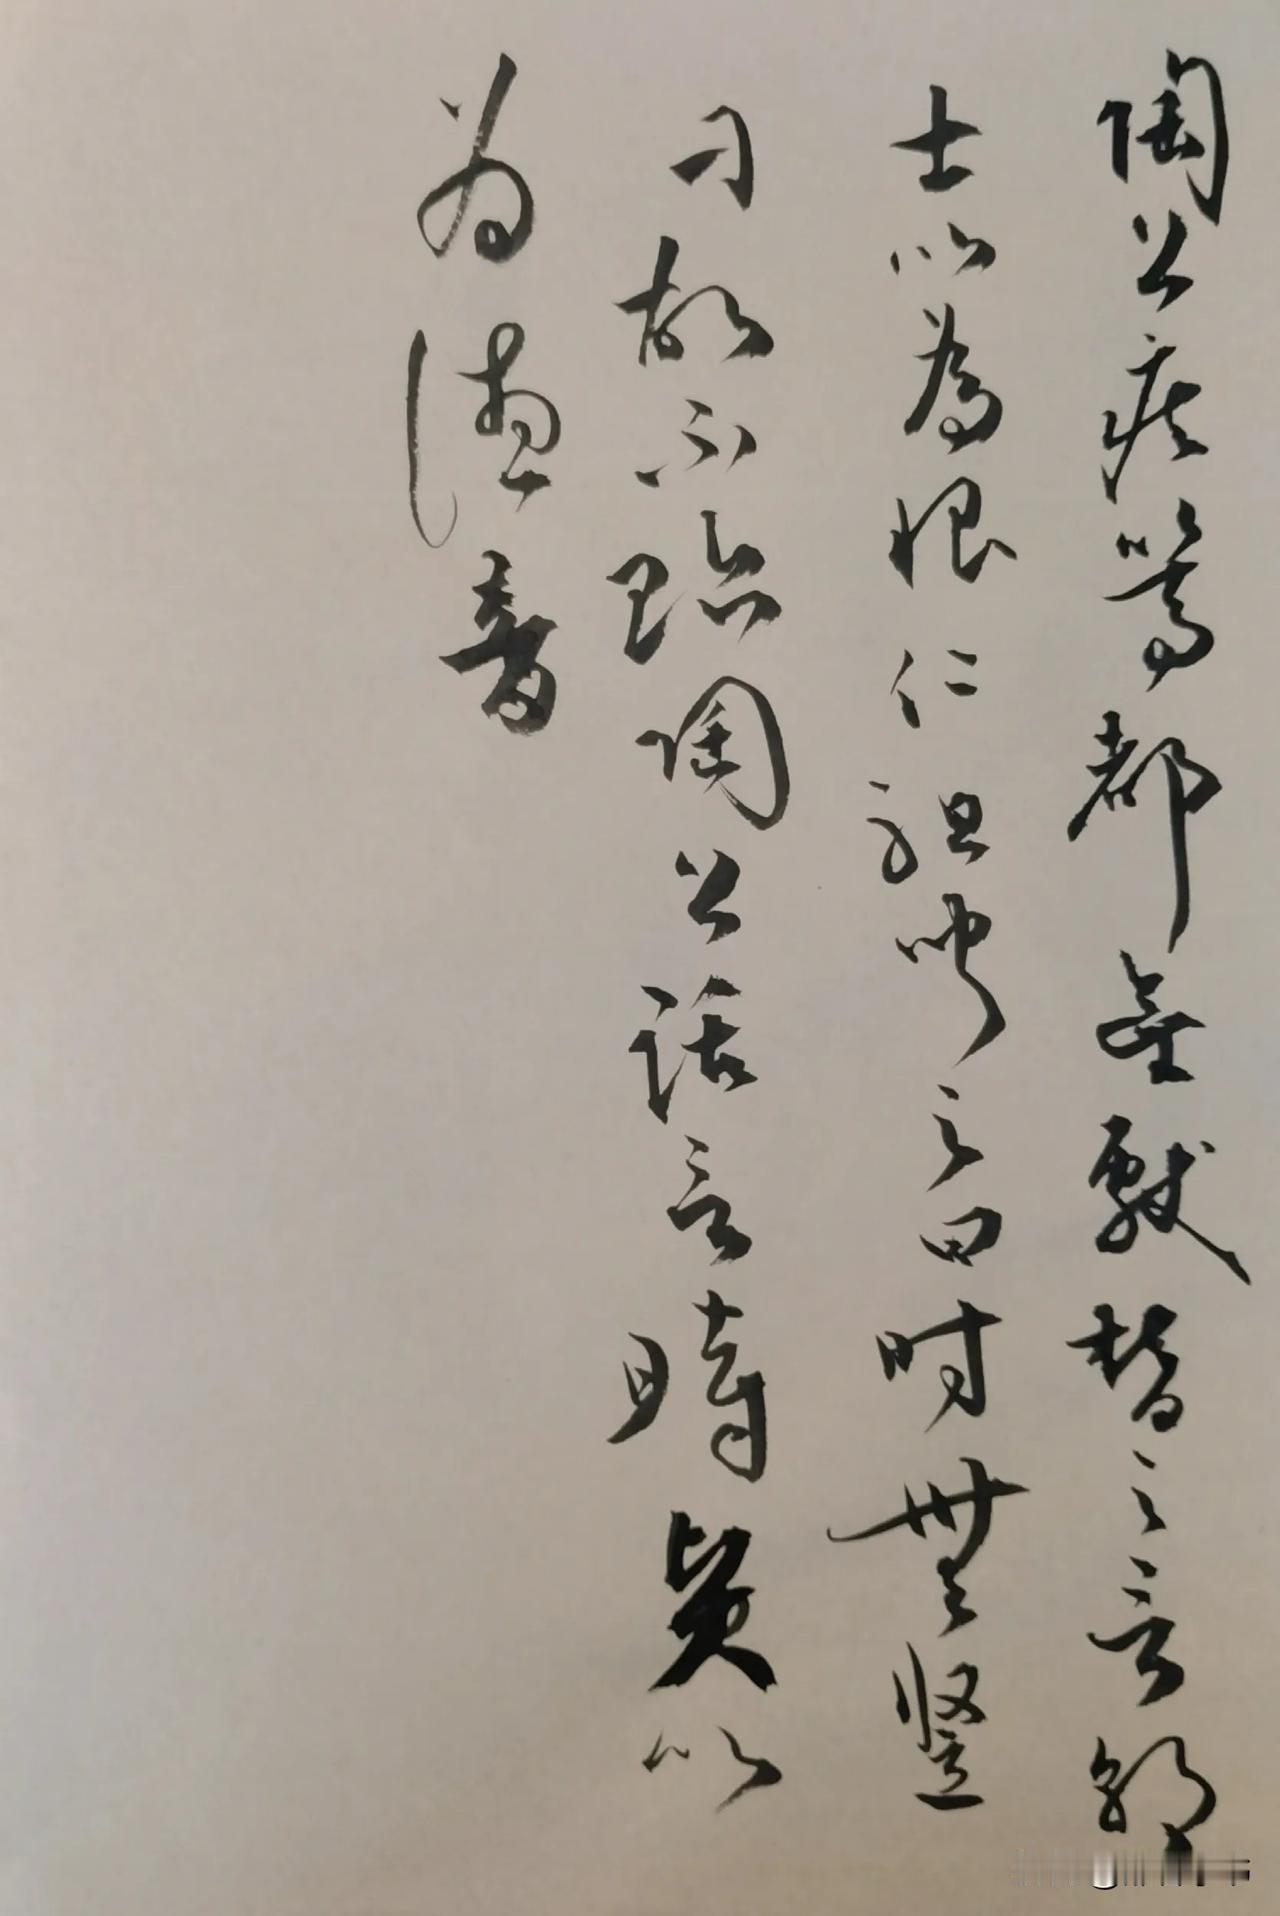 陶公疾笃都無献替之言朝
士以為恨仁祖聞之曰時無竖
刁故不貽陶公話言時賢以
为德音